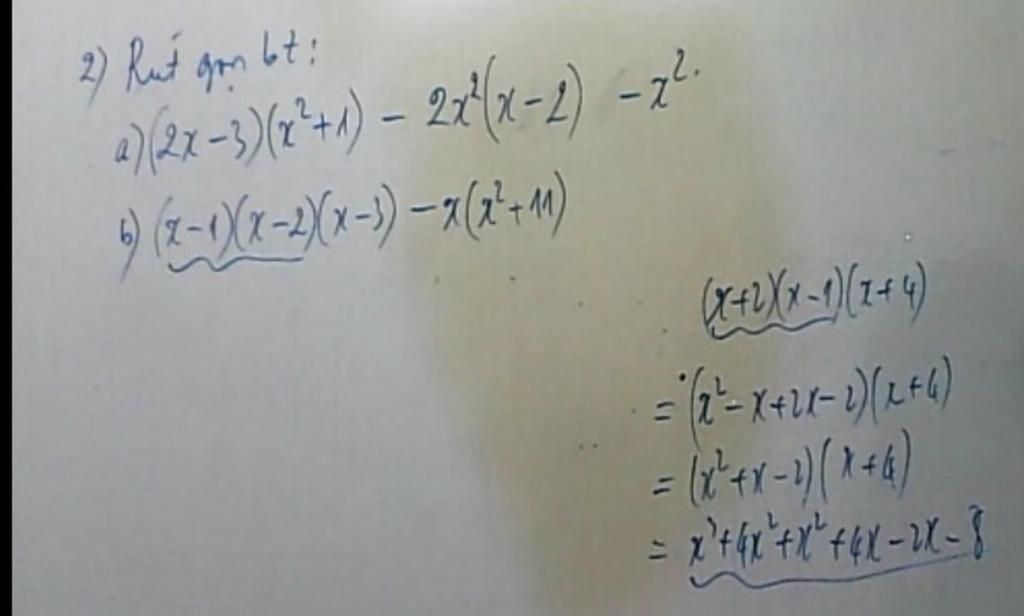 2) Rút gọn bt:
a) (2x-3)(x²+1) - 2x²(x-2) - x².
b) (x-1)(x-2)(x-3) - x(x²+11)
(x+2)(x-1)(x+4)
= (x²-x+2x-2)(x+4)
= (x²+x-2)(x+4)
= x³+4x²+x²+4x-2x-8